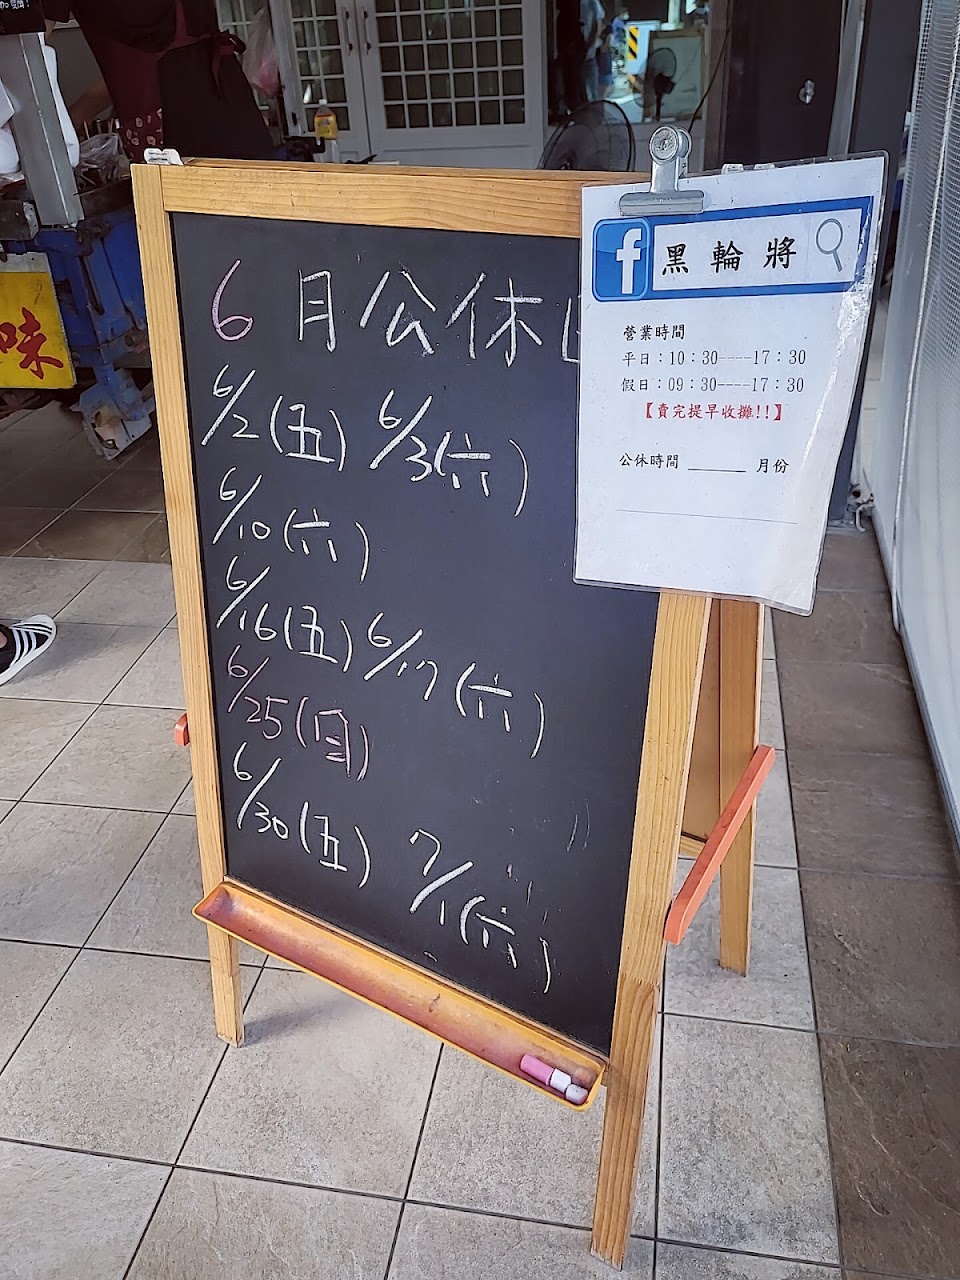 加麵!
味
6月公休日
6/2(五) 6/3(六)
6/10(六)
6/16(五) 6/17(六)
6/25(日)
6/30(五) 7/1(六)
f 黑輪將
營業時間
平日：10：30----17：30
假日：09：30----17：30
【賣完提早收攤!!】
公休時間 ______ 月份